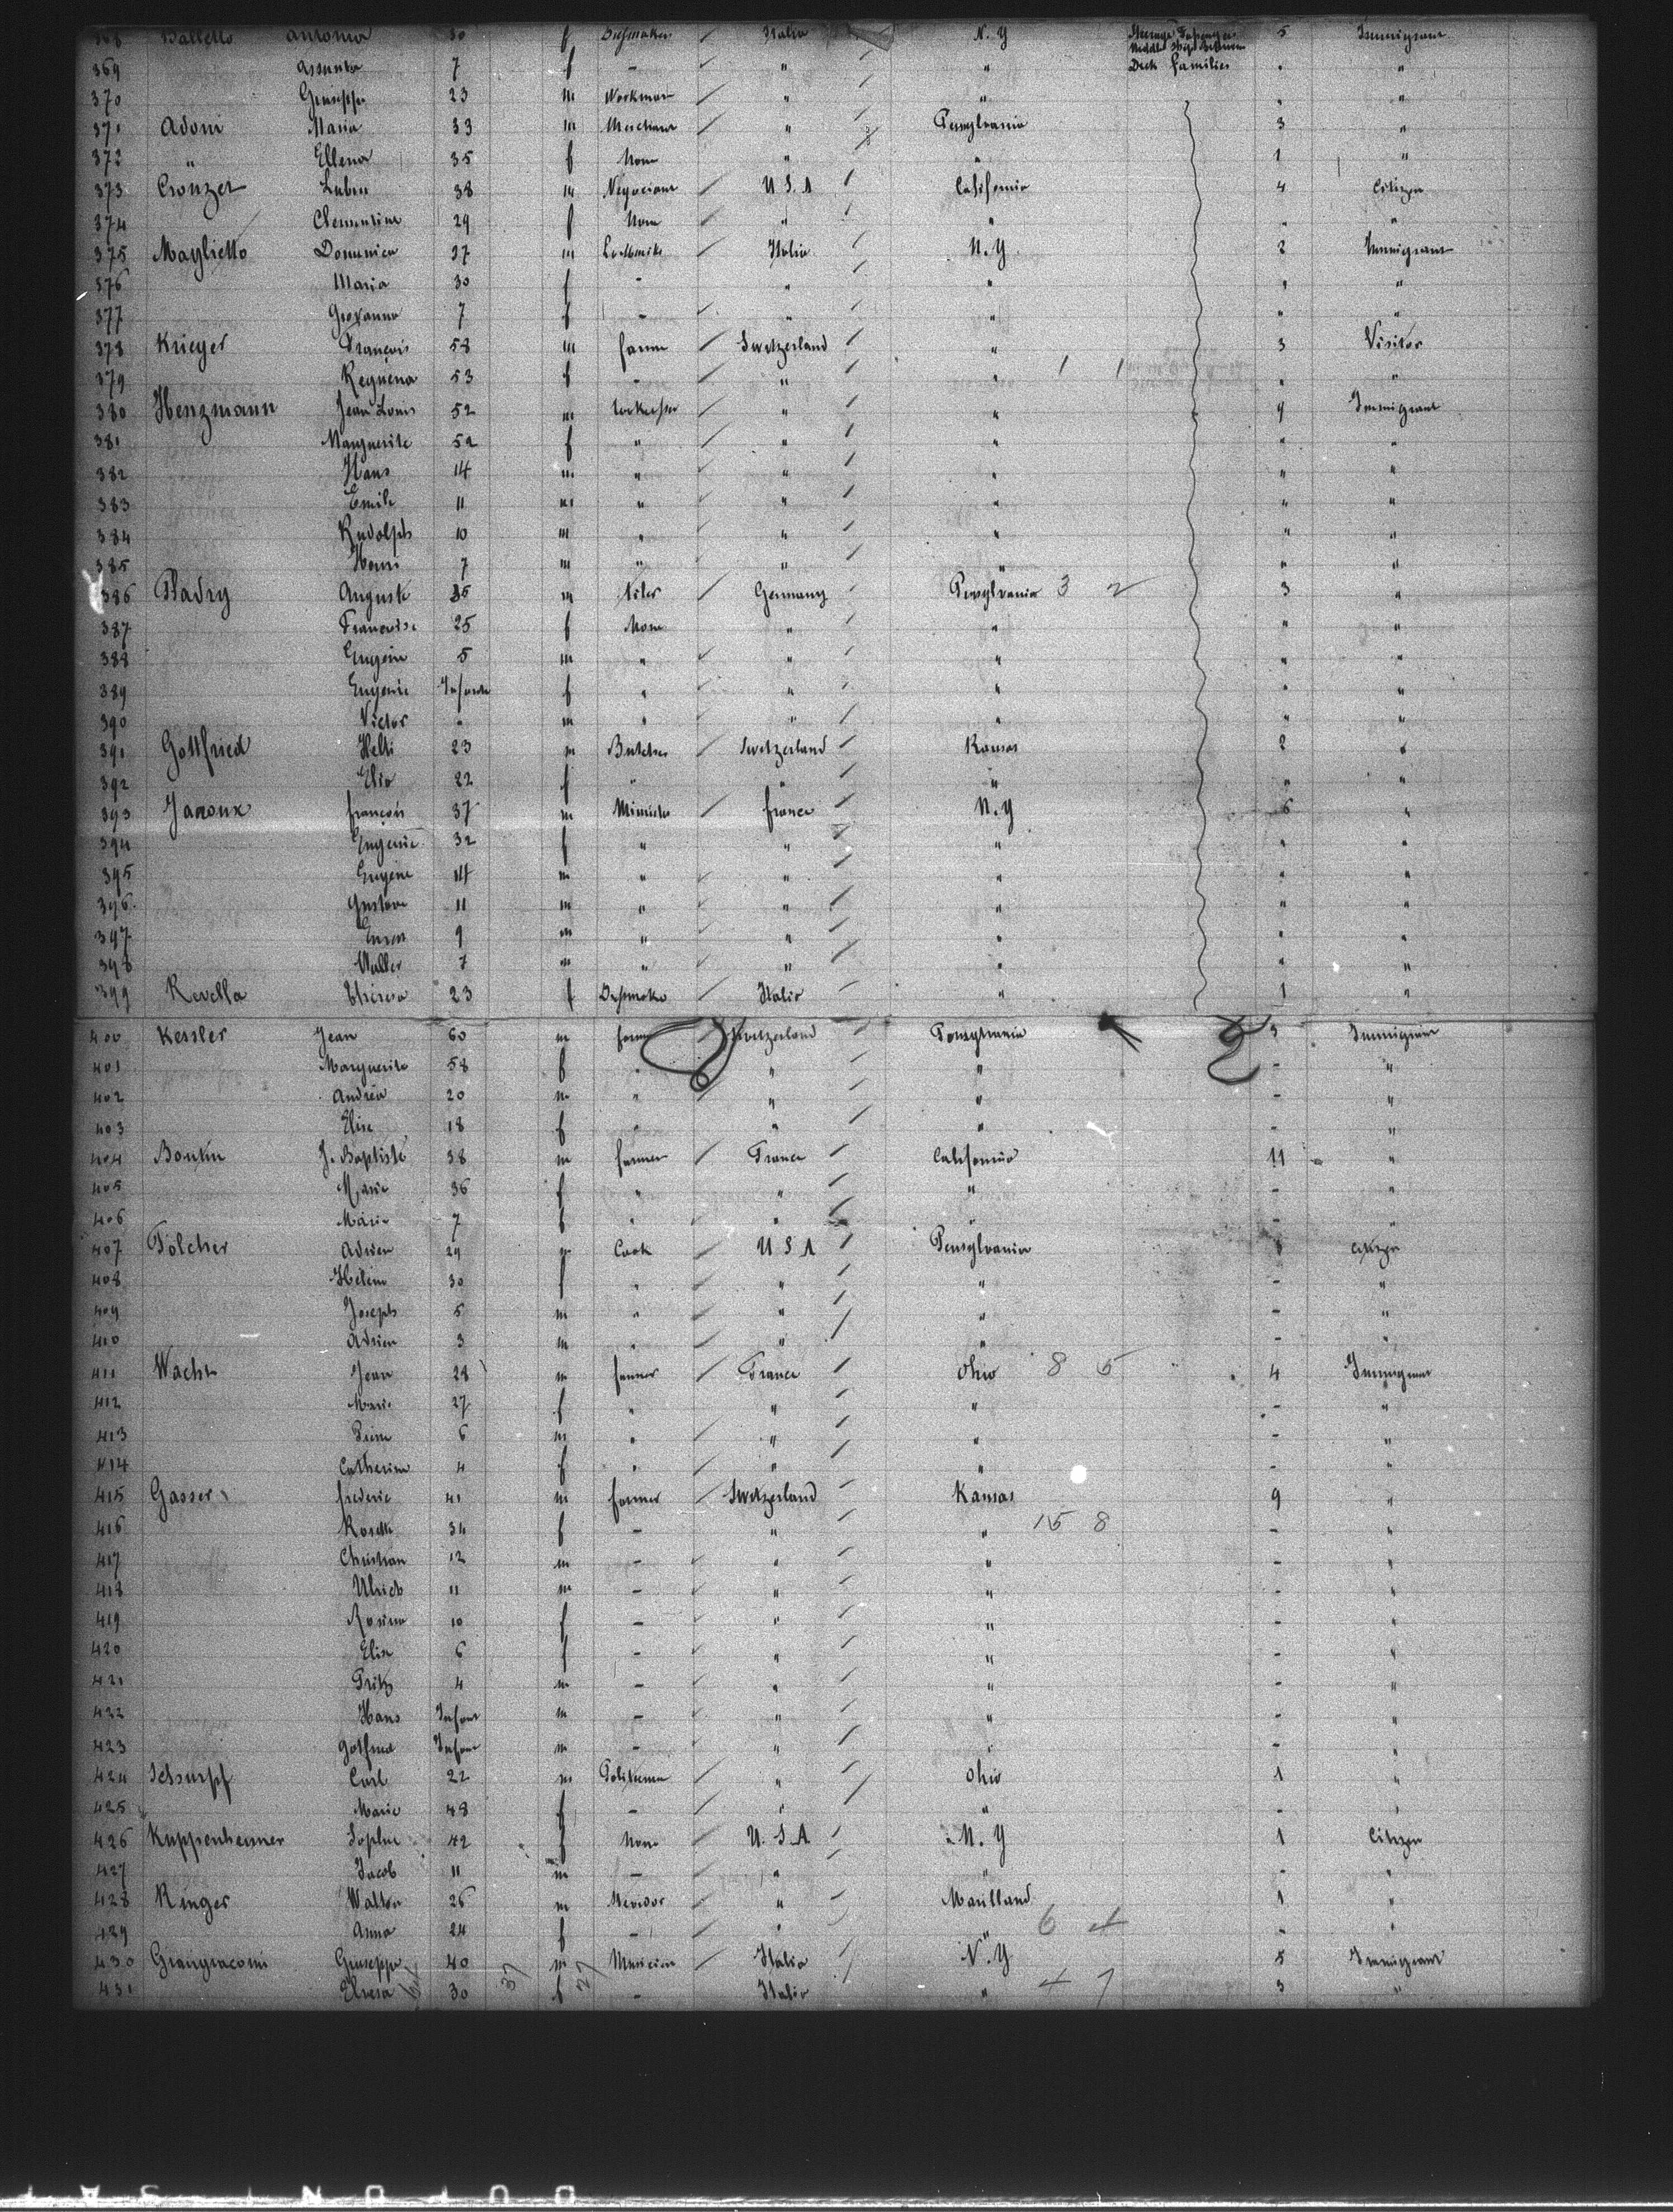 368 Balletto Antonia 30 f Dressmaker Italia N. Y Steerage Passengers Middle Ship Between Deck families 5 Immigrant
369 Assunta 7 f - " " " "
370 Giuseppe 23 m Workman " " " "
371 Adoni Maria 33 m Merchant " Pensylvania 3 "
372 " Ellena 35 f None " " 1 "
373 Crouzet Lubin 38 m Negociant U S A California 4 Citizen
374 Clementine 29 f None " " " "
375 Maglietto Domenico 37 m Italia N. Y. 2 Immigrant
376 Maria 30 f - " " " "
377 Giovanna 7 f - " " " "
378 Krieger François 58 m farmer Switzerland " 3 Visitor
379 Regnena 53 f - " " 1 1 " "
380 Henzmann Jean Louis 52 m " " 9 Immigrant
381 Marguerite 52 f " " " " "
382 Hans 14 m " " " " "
383 Emile 11 m " " " " "
384 Rudolph 10 m " " " " "
385 Henri 7 m " " " " "
386 Pladry Auguste 35 m Germany Pensylvania 3 2 3 "
387 Francoise 25 f None " " " "
388 Eugene 5 m " " " " "
389 Eugenie Infante f " " " " "
390 Victor " m " " " " "
391 Gottfried Helti 23 m Butcher Switzerland Kansas 2 "
392 Elia 22 f " " " " "
393 Jaroux françois 37 m france N. Y 6 "
394 Eugenie 32 f " " " " "
395 Eugene 14 m " " " " "
396 Gustave 11 m " " " " "
397 9 m " " " " "
398 Walter 7 m " " " " "
399 Revella Theresa 23 f Dressmaker Italia " 1 "
400 Kessler Jean 60 m farmer Switzerland Pensylvania 3 Immigrant
401 Marguerite 58 f " " " - "
402 Andrea 20 m " " " - "
403 Elise 18 f " " " - "
404 Boukin J. Baptiste 38 m farmer France California 11 "
405 Marie 36 f " " " - "
406 Marie 7 f " " " - "
407 Folcher Adrien 29 m Cook U S A Pensylvania Citizen
408 Helene 30 f " " " - "
409 Joseph 5 m " " " - "
410 Adrien 3 m " " " - "
411 Wacht Jean 28 m farmer France Ohio 8 5 4 Immigrant
412 Marie 27 f " " " - "
413 6 m " " " - "
414 Catherine 4 f " " " - "
415 Gasser frederic 41 m farmer Switzerland Kansas 9 "
416 Rosette 34 f - " " 15 8 - "
417 Christian 12 m - " " - "
418 Ulrich 11 m - " " - "
419 Rosina 10 f - " " - "
420 Elise 6 f - " " - "
421 Fritz 4 m - " " - "
422 Hans Infant m - " " - "
423 Gotfried Infant m - " " - "
424 Schurpf Carl 22 m " Ohio 1 "
425 Marie 48 f - " " - "
426 Kuppenheimer Sophie 42 f None U. S. A N. Y 1 Citizen
427 Jacob 11 m - " " - "
428 Ringer Walter 26 m " Marilland 1 "
429 Anna 24 f - " " 6 4 - "
430 Grangiacomi Giuseppe 40 m Musician Italia N. Y 5 Immigrant
431 Elvesa 30 37 f 27 - Italia " 4 7 3 "